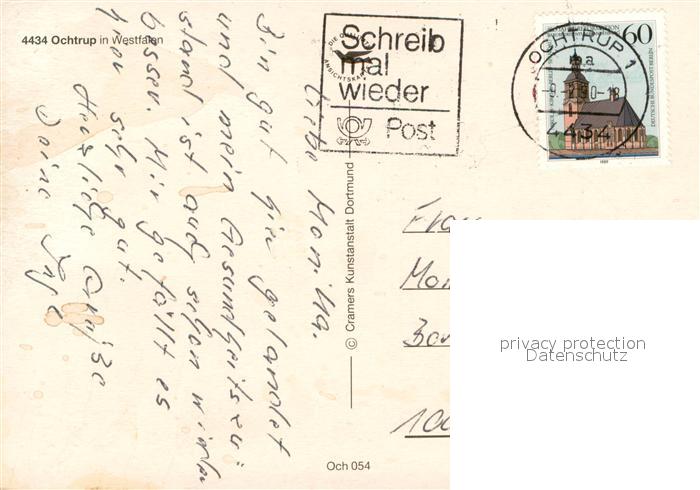 4434 Ochtrup in Westfalen
Schreib
mal
wieder
Post
DIE QUALITÄTS
ANSICHTSKARTE
OCHTRUP 1
ma
-9.-2.90-18
4434
60
DEUTSCHE BUNDESPOST BERLIN
1989
Liebe Monika.
Bin gut hier gelandet
und mein Gesundheitszu-
stand ist auch schon wieder
besser. Mir gefällt es
hier sehr gut.
Herzliche Grüße
Deine Inge
© Cramers Kunstanstalt Dortmund
Frau
Mon
100
privacy protection
Datenschutz
Och 054